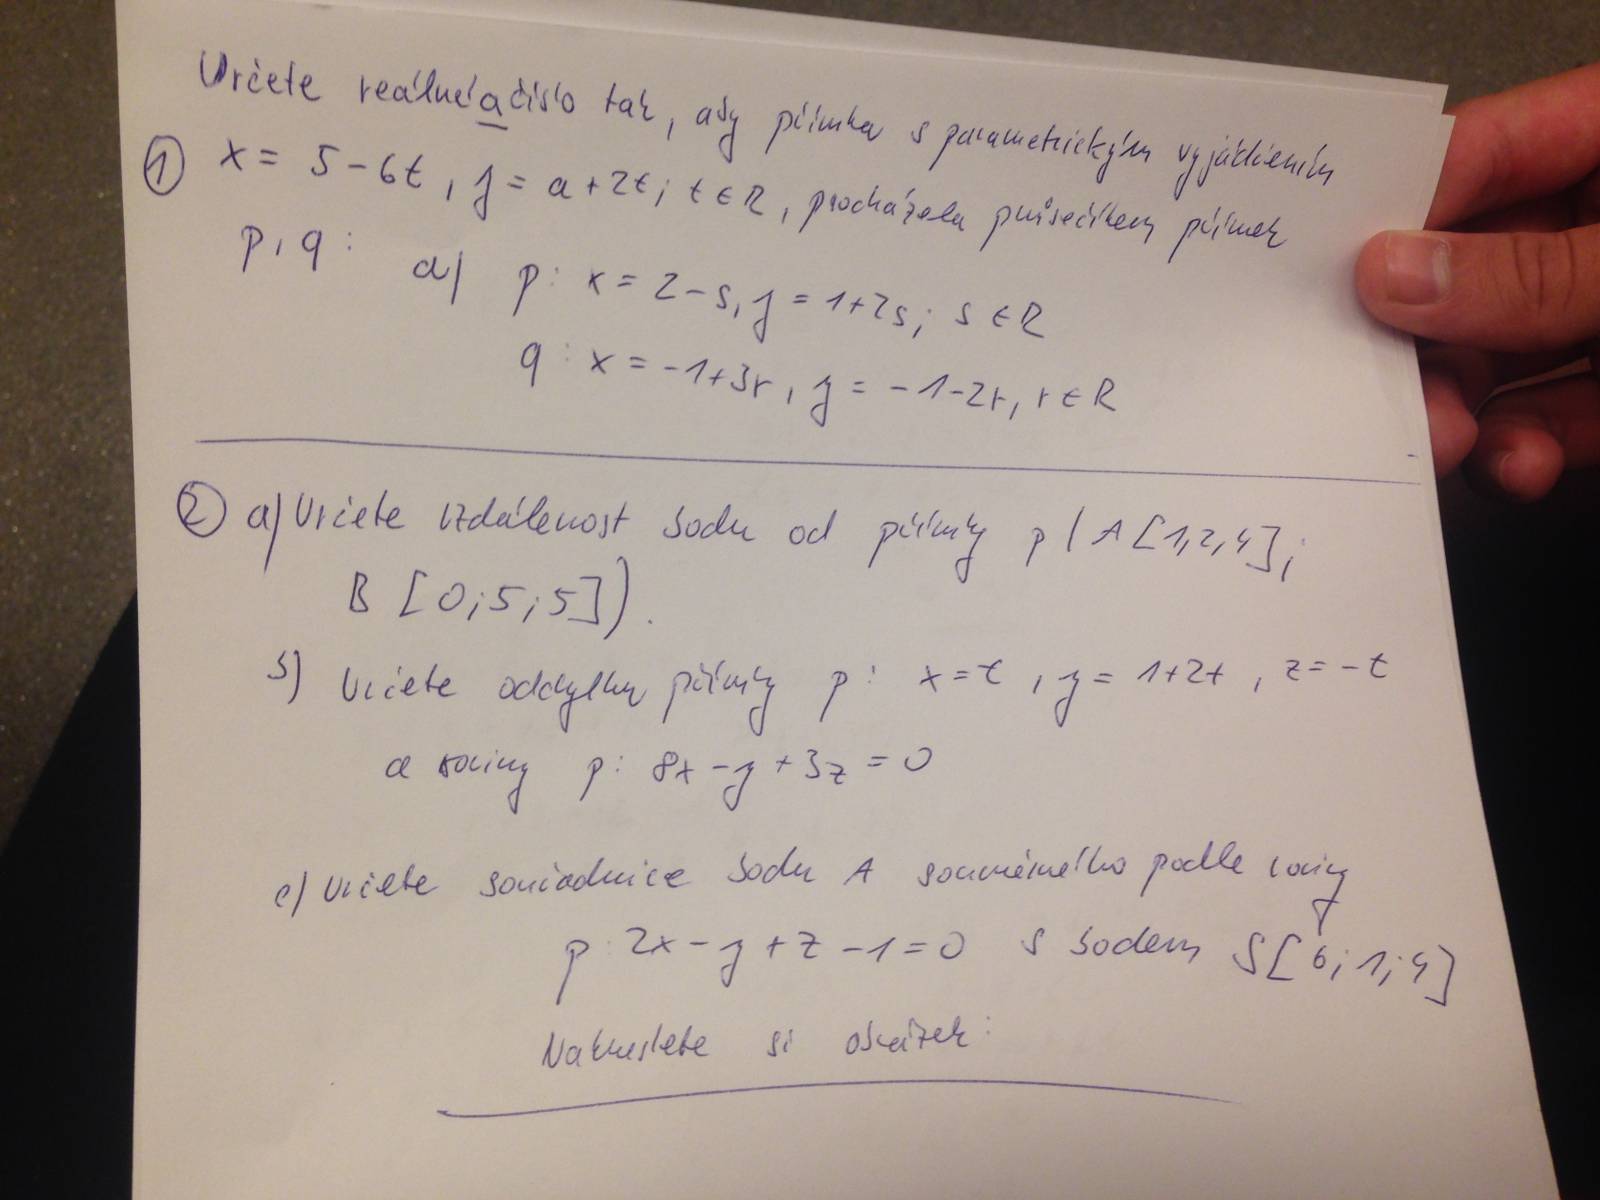 Určete reálné a číslo tak, aby přímka s parametrickým vyjádřením
① x = 5 - 6t, y = a + 2t; t ∈ R, procházela průsečíkem přímek
p, q: a) p: x = 2 - s, y = 1 + 2s; s ∈ R
q: x = -1 + 3r, y = -1 - 2r, r ∈ R
② a) Určete vzdálenost bodu od přímky p (A [1, 2, 4];
B [0; 5; 5]).
b) Určete odchylku přímky p: x = t, y = 1 + 2t, z = -t
a roviny p: 8x - y + 3z = 0
c) Určete souřadnice bodu A souměrného podle roviny
p: 2x - y + z - 1 = 0 s bodem S [6; 1; 4]
Nakreslete si obrázek: